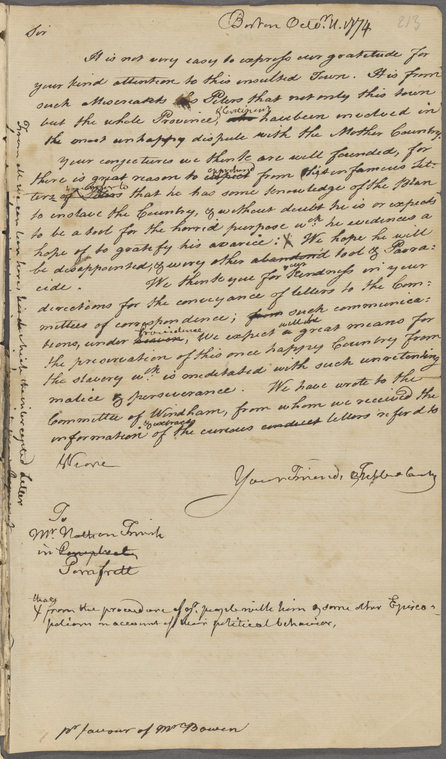 213
Boston Octor. 11. 1774
Sir
It is not very easy to express our gratitude for
your kind attention to this insulted Town. It is from
such Miscreants as Peters that not only this town
but the whole Province had been involved in
the most unhappy dispute with the Mother Country.
Your conjectures we think are well founded, for
there is great reason to from his infamous Let-
ters that he has some knowledge of the Plan
to enslave the Country, & without doubt he is or expects
to be a tool for the horrid purpose wch he evidences a
hope of to gratify his avarice: X We hope he will
be disappointed, & every other abandoned tool & Parra-
cide. We thank you for your kindness in your
directions for the conveyance of letters to the Com-
mittees of correspondence; from such communica-
tions, under Providence, We expect will be a great means for
the preservation of this once happy Country from
the slavery wch is meditated with such unrelenting
malice & perseverance. We have wrote to the
Committee of Windham, from whom we received the
information & extracts of the curious letters refer'd to
We are
Your Friends,
To
Mr. Nathan Frink
in
Pomfrett
X from the procedure of people with him & some other Episco-
palians on account of their political behavior,
pr favour of Mr Bowen